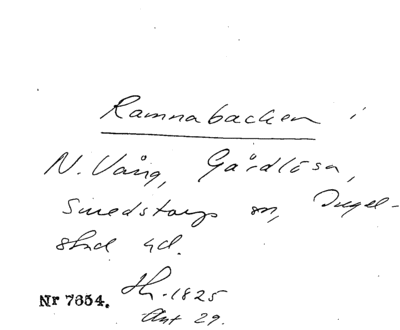 Ramnabacken i
N. Vång, Gårdlösa,
Smedstorps sn, Ingel-
stad hd.
Nr 7654.
1825
Ant 29.